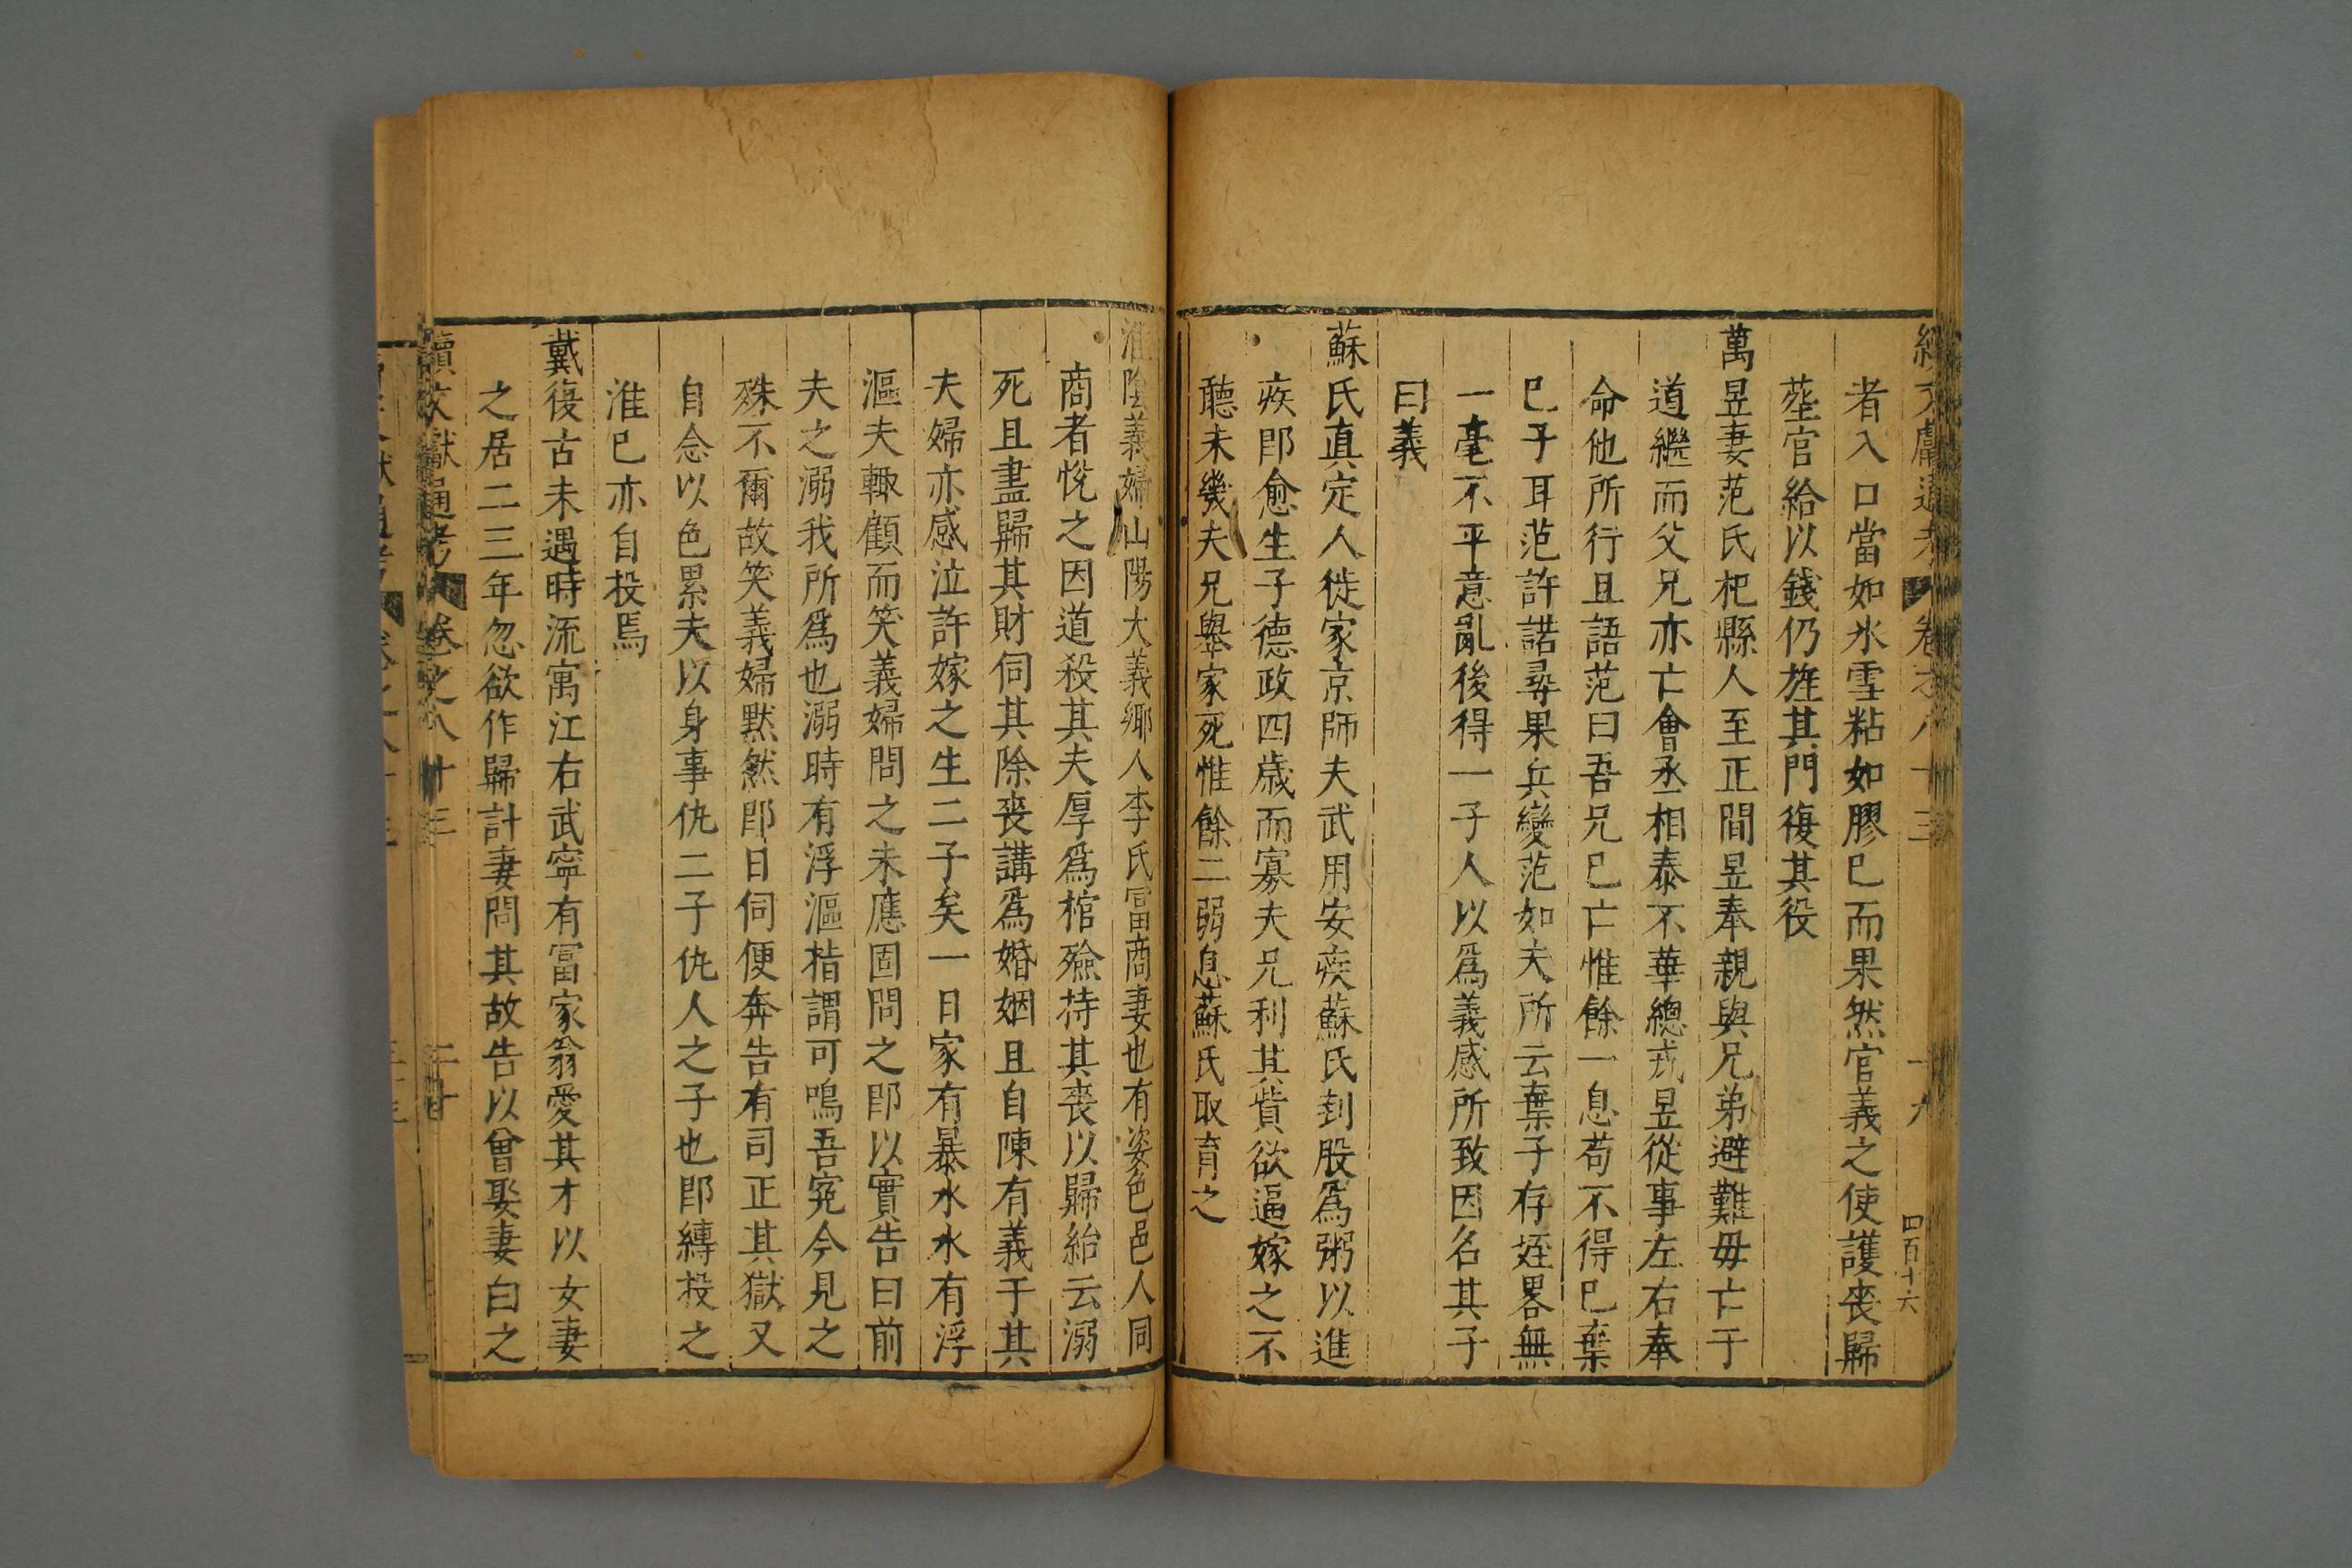 續文獻通考 卷之八十三 十九 四百十六
者入口當如氷雪粘如膠巳而果然官義之使護喪歸
塟官給以錢仍旌其門復其役
萬昱妻范氏杞縣人至正間昱奉親與兄弟避難毋亡于
道繼而父兄亦亡會丞相泰不華總戎昱從事左右奉
命他所行且語范曰吾兄巳亡惟餘一息苟不得巳棄
巳子耳范許諾尋果兵變范如夫所云棄子存姪畧無
一毫不平意亂後得一子人以爲義感所致因名其子
曰義
蘇氏真定人徙家京師夫武用安疾蘇氏刲股爲粥以進
疾卽愈生子德政四歲而寡夫兄利其貲欲逼嫁之不
聽未幾夫兄舉家死惟餘二弱息蘇氏取育之
淮陰義婦山陽大義鄉人李氏富商妻也有姿色邑人同
商者悅之因道殺其夫厚爲棺殮持其喪以歸紿云溺
死且盡歸其財伺其除喪講爲婚姻且自陳有義于其
夫婦亦感泣許嫁之生二子矣一日家有暴水水有浮
漚夫輙顧而笑義婦問之未應固問之卽以實告曰前
夫之溺我所爲也溺時有浮漚指謂可鳴吾寃今見之
殊不爾故笑義婦黙然卽日伺便奔告有司正其獄又
自念以色累夫以身事仇二子仇人之子也卽縛投之
淮巳亦自投焉
戴復古未遇時流寓江右武寧有富家翁愛其才以女妻
之居二三年忽欲作歸計妻問其故告以曾娶妻白之
續文獻通考 卷之八十三 二十